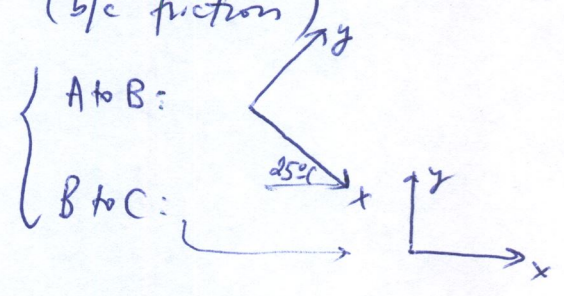 (b/c friction)
y
A to B:
25°
x
B to C:
y
x